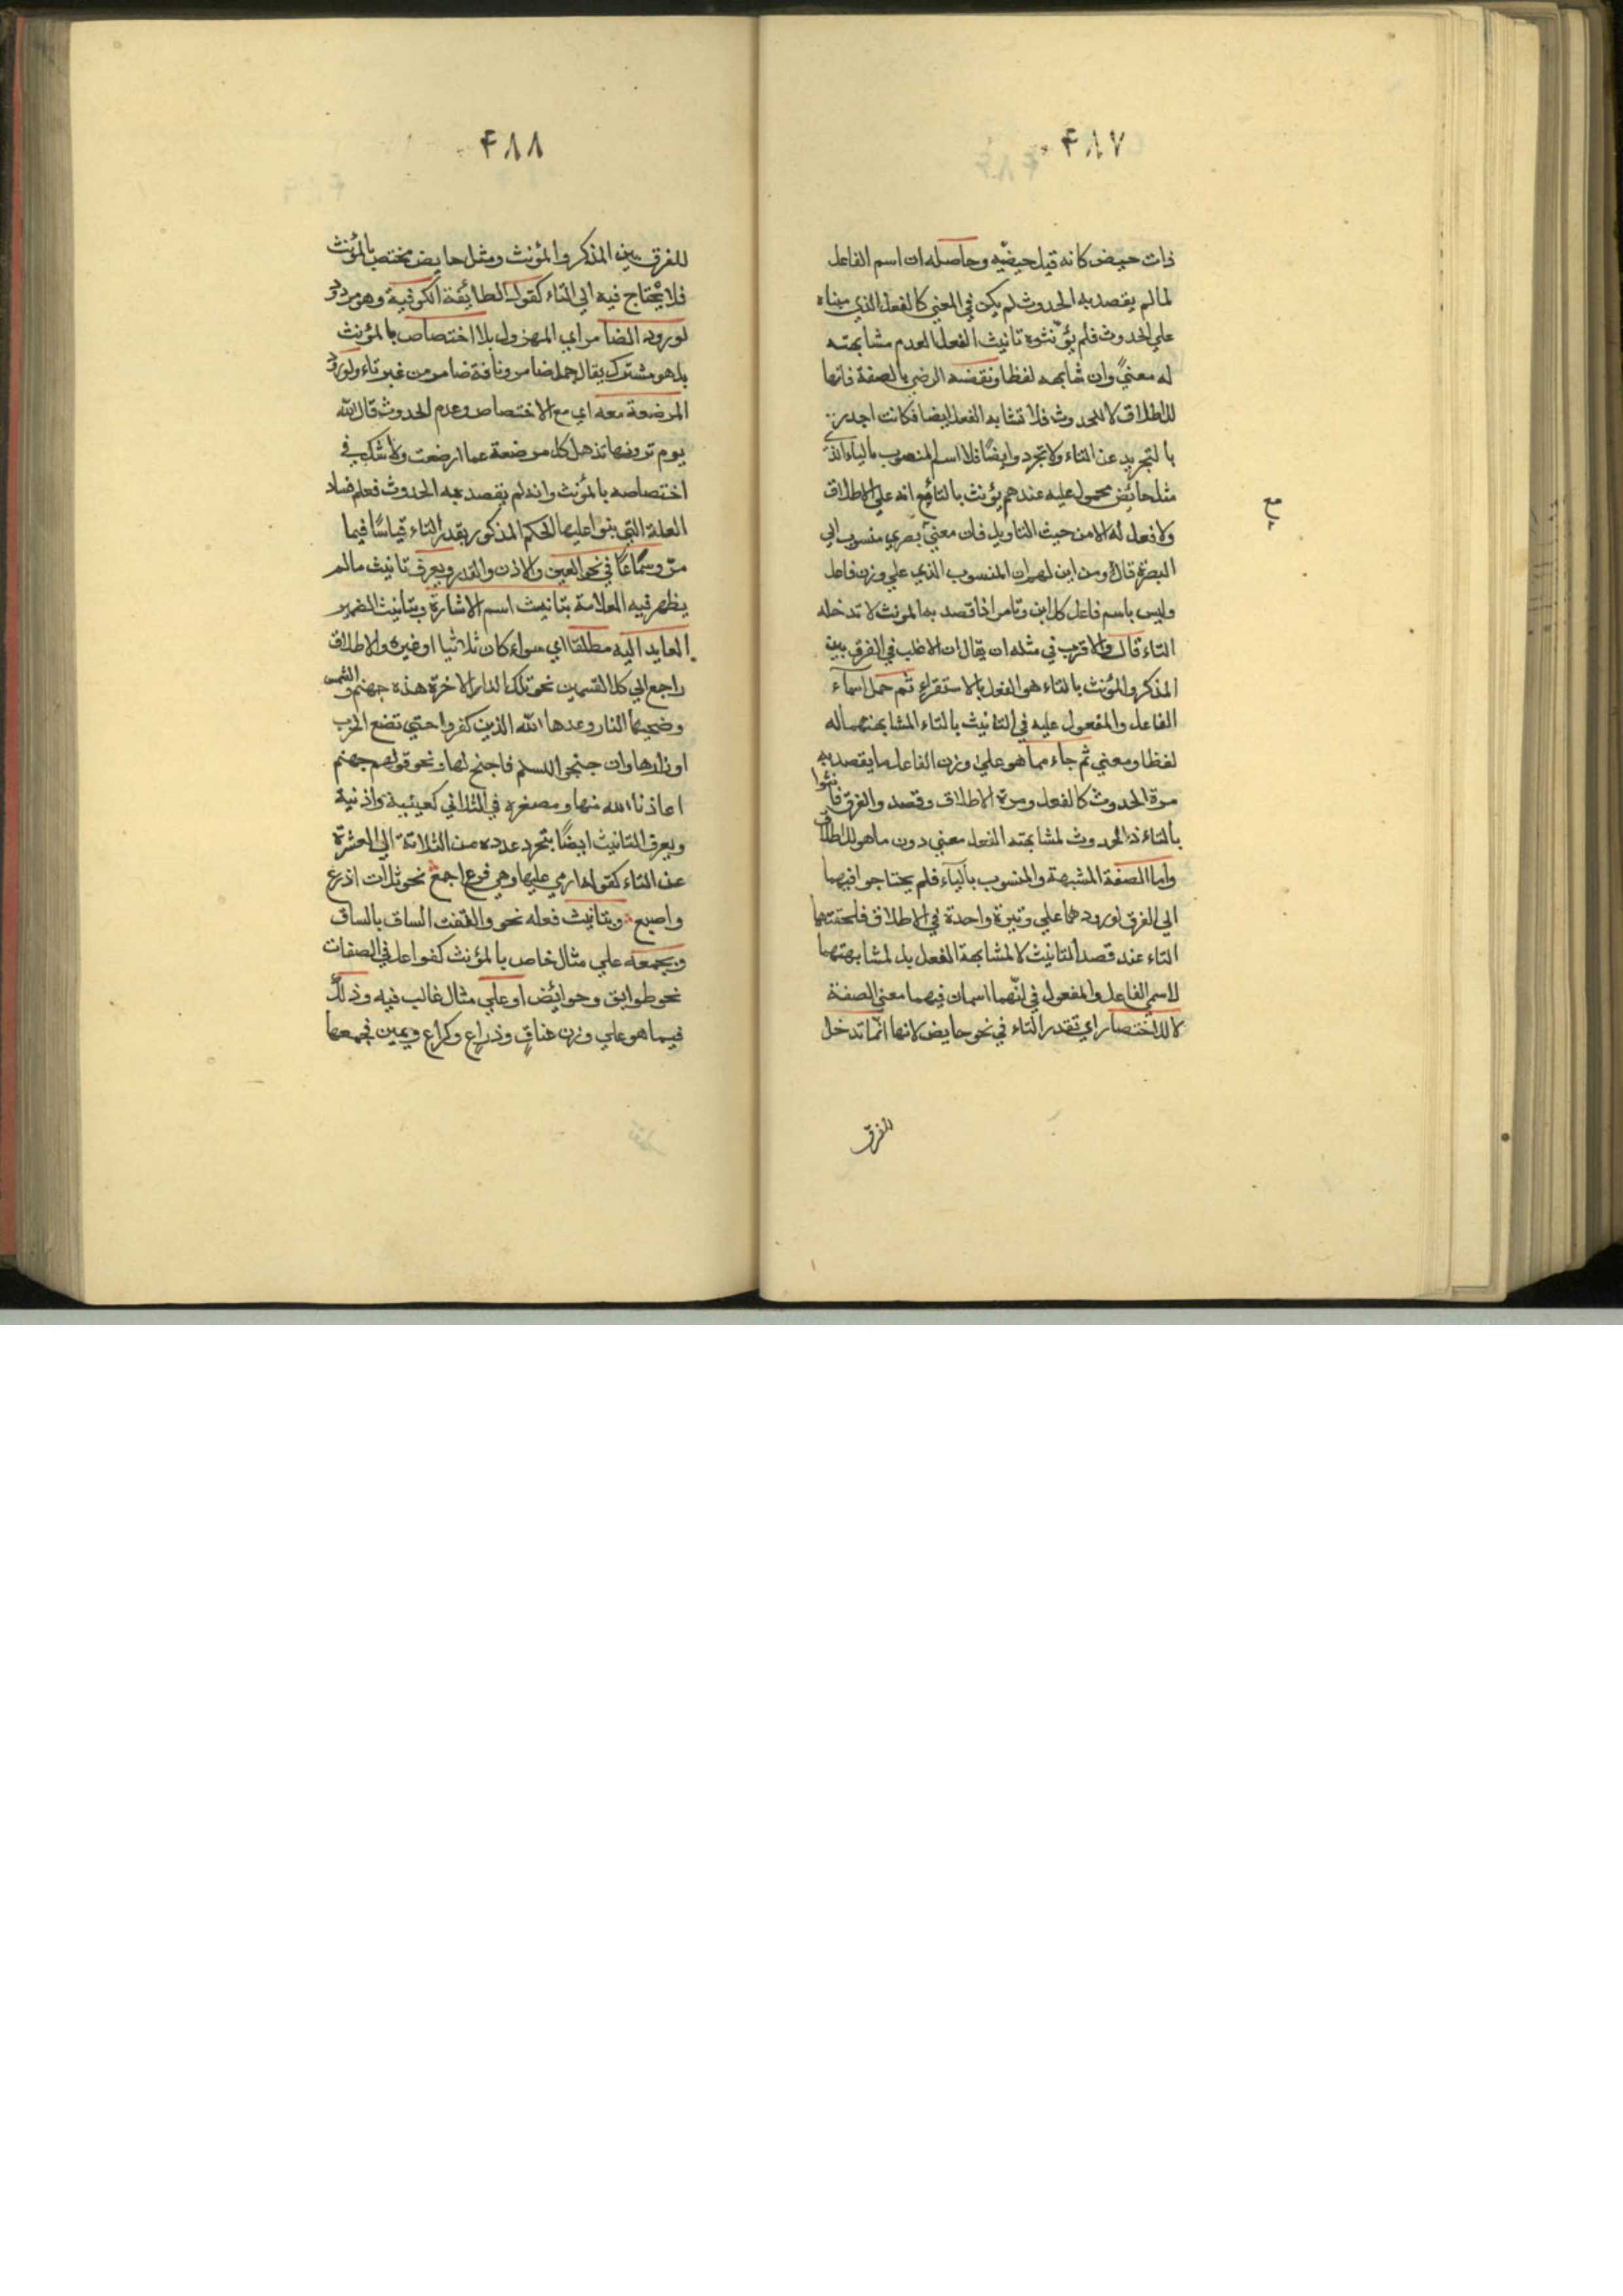 ۴۸۷
ذات حيض كانه قيل حيضيه وحاصله ان اسم الفاعل
لما لم يقصد به الحدوث لم يكن في المعني كالفعل الذي مبناه
علي الحدوث فلم يؤنثوه تانيث الفعل لعدم مشابهته
له معنيً وان شابهه لفظا ونقضه الرضي بالصفة فانها
للاطلاق لا للحدوث فلا تشابه الفعل ايضا فكانت اجدر
بالتجريد عن التاء ولا تجرد وايضًا فلا اسم المنصوب بالياء الذي
مثل حائض محمول عليه عندهم يؤنث بالتاء مع انه علي الاطلاق
ولا فعل له الا من حيث التاويل فان معني بصري منسوب الي
البصرة قال ومن اين لهم ان المنسوب الذي علي وزن فاعل
وليس باسم فاعل كلابن وتامر اذا قصد به المونث لا تدخله
التاء قال والاقرب في مثله ان يقال ان الاغلب في الفرق بين
المذكر والمؤنث بالتاء هو الفعل بالاستقراء ثم حمل اسماء
الفاعل والمفعول عليه في التانيث بالتاء لمشابهتهما له
لفظا ومعني ثم جاء مما هو علي وزن الفاعل ما يقصد به
مرة الحدوث كالفعل ومرة الاطلاق وقصد والفرق فانثوا
بالتاء ذا الحدوث لمشابهته الفعل معني دون ما هو للاطلاق
واما الصفة المشبهة والمنسوب بالياء فلم يحتاجوا فيهما
الي الفرق لورودهما علي وتيرة واحدة في الاطلاق فلحقتهما
التاء عند قصد التانيث لا لمشابهة الفعل بل لمشابهتهما
لاسمي الفاعل والمفعول في انهما اسمان فيهما معني الصفة
لا للاختصار اي تقدر التاء في نحو حايض لانها انما تدخل
للفرق
۴۸۸
للفرق بين المذكر والمؤنث ومثل حايض مختص بالمؤنث
فلا يحتاج فيه الي التاء كقول الطايفة الكوفية وهو مردود
لورود الضامر اي المهزول بلا اختصاص بالمؤنث
بل هو مشترك يقال جمل ضامر وناقة ضامر من غير تاء ولورود
المرضعة معه اي مع الاختصاص وعدم الحدوث قال الله
يوم ترونها تذهل كل مرضعة عما ارضعت ولا شك في
اختصاصه بالمؤنث وانه لم يقصد به الحدوث فعلم فساد
العلة التي بنوا عليها الحكم المذكور بقدر التاء قياسًا فيما
مرّ وسماعًا في نحو العين والاذن والقدر ويعرف تانيث مالم
يظهر فيه العلامة بتانيث اسم الاشارة وبتانيث الضمير
العايد اليه مطلقا اي سواء كان ثلاثيا او غيره والاطلاق
راجع الي كلا القسمين نحو تلك الدار الاخرة هذه جهنم والشمس
وضحيها النار وعدها الله الذين كفروا حتي تضع الحرب
اوزارها وان جنحوا للسلم فاجنح لها ونحو قولهم جهنم
اعاذنا الله منها ومصغره في الثلاثي كعيينة واذنية
ويعرف التانيث ايضًا بتجرد عدده من الثلاثة الي العشرة
عن التاء كقوله ارمي عليها وهي فرع اجمع نحو ثلاث اذرع
واصبع وبتانيث فعله نحو والتفت الساق بالساق
وبجمعه علي مثال خاص بالمؤنث كفواعل في الصفات
نحو طوالق وحوائض او علي مثال غالب فيه وذلك
فيما هو علي وزن عناق وذراع وكراع ويمين فجمعها